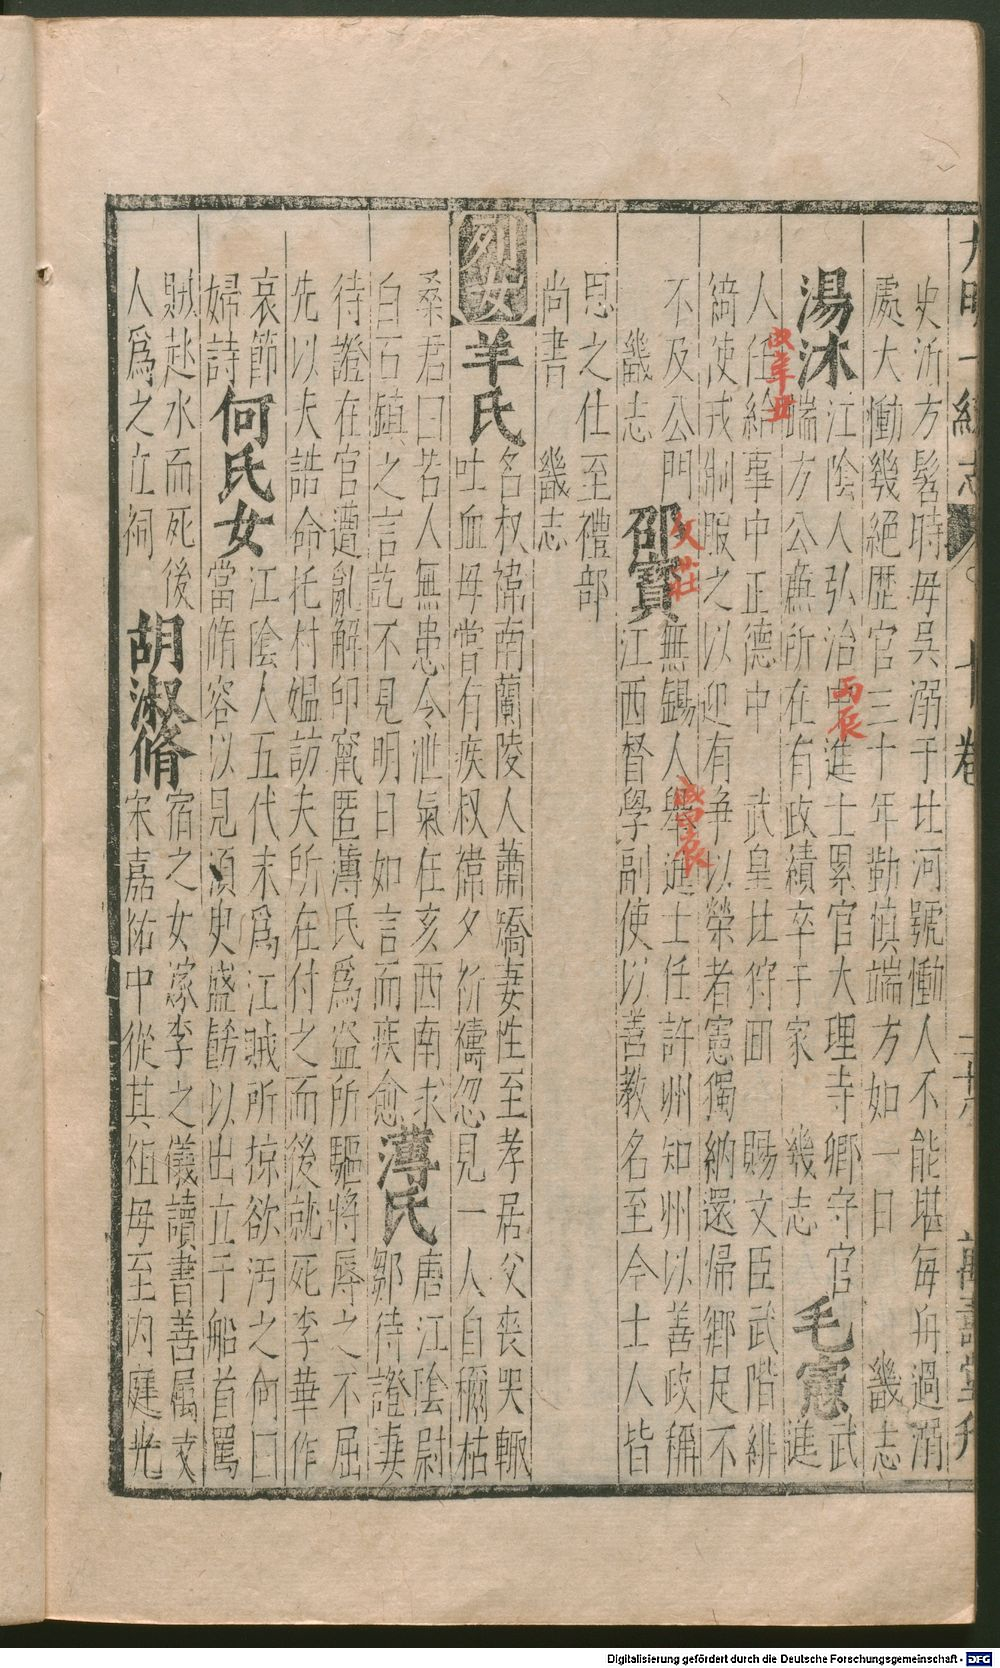 大明一統志 十卷 二十六 萬壽堂刊
史沂方髫時母吳溺于北河號慟人不能堪每舟過溺
處大慟幾絕歷官三十年勤慎端方如一日 畿志
湯沐 江陰人弘治中進士累官大理寺卿守官
丙辰
端方公廉所在有政績卒于家 畿志 毛憲 武進
人任給事中正德中 武皇北狩回 賜文臣武階緋
改辛丑
綺使戎制服之以迎有爭以榮者憲獨納還歸鄉足不
不及公門 畿志 邵寶 無錫人舉進士任許州知州以善政稱
文莊
成甲辰
江西督學副使以善教名至今士人皆
思之仕至禮部
尚書 畿志
列女 羊氏 名叔禕南蘭陵人蕭矯妻性至孝居父喪哭輒
吐血母嘗有疾叔禕夕祈禱忽見一人自稱枯
桑君曰若人無患今泄氣在亥西南求
白石鎮之言訖不見明日如言而疾愈 薄氏 唐江陰尉
鄒待證妻
待證在官遭亂解印竄匿薄氏爲盜所驅將辱之不屈
先以夫誥命托村媼訪夫所在付之而後就死李華作
哀節婦詩 何氏女 江陰人五代末爲江賊所掠欲污之何曰
當脩容以見須臾盛餙以出立于船首罵
賊赴水而死後
人爲之立祠 胡淑脩 宿之女嫁李之儀讀書善屬文
宋嘉祐中從其祖母至內庭光
Digitalisierung gefördert durch die Deutsche Forschungsgemeinschaft - DFG